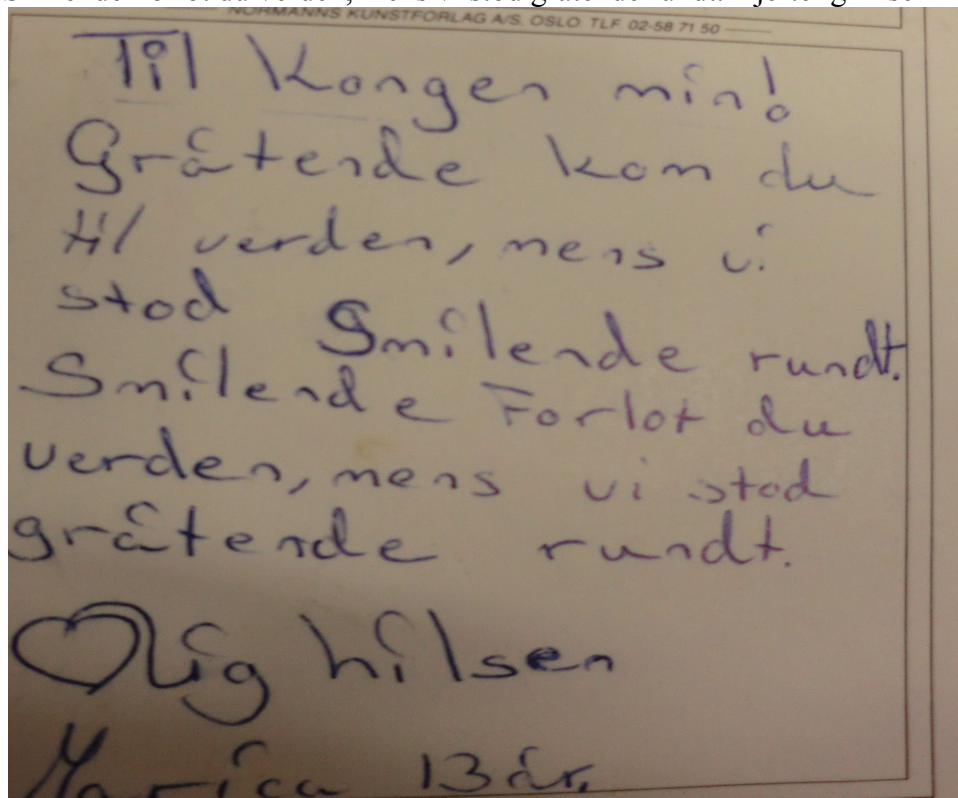 NORMANNS KUNSTFORLAG A/S, OSLO. TLF. 02-58 71 50
Til Kongen min!
Gråtende kom du
til verden, mens vi
stod Smilende rundt.
Smilende Forlot du
verden, mens vi stod
gråtende rundt.
lig hilsen
13 år.